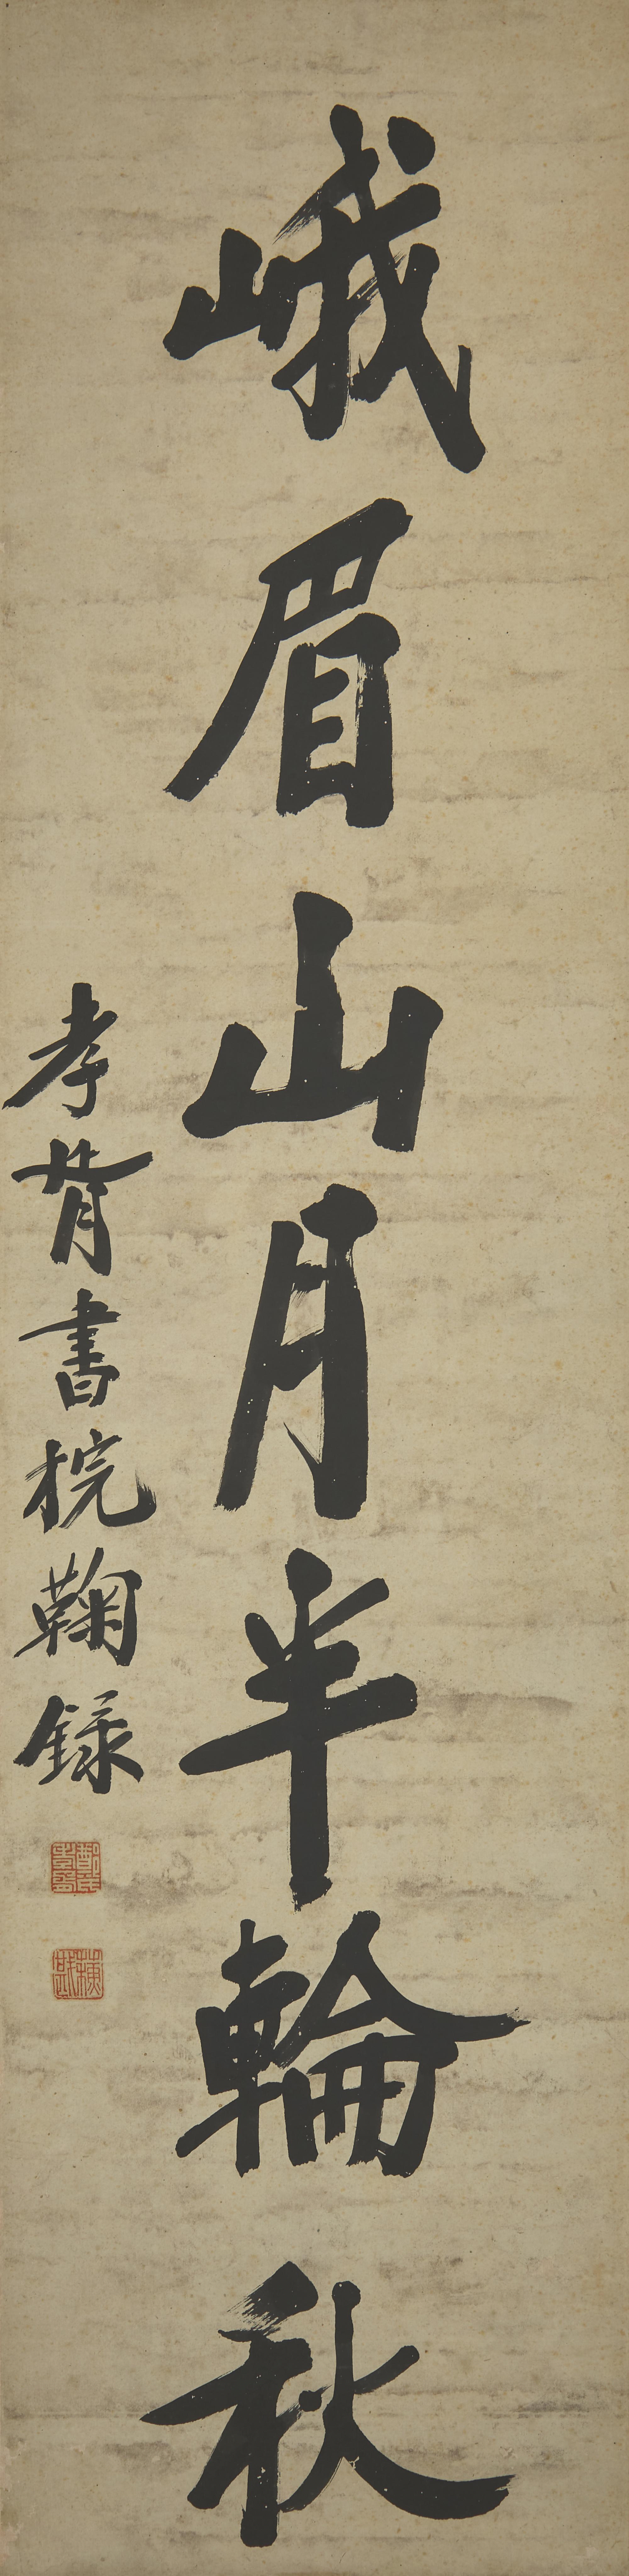 峨眉山月半輪秋
孝胥書於鞠錄